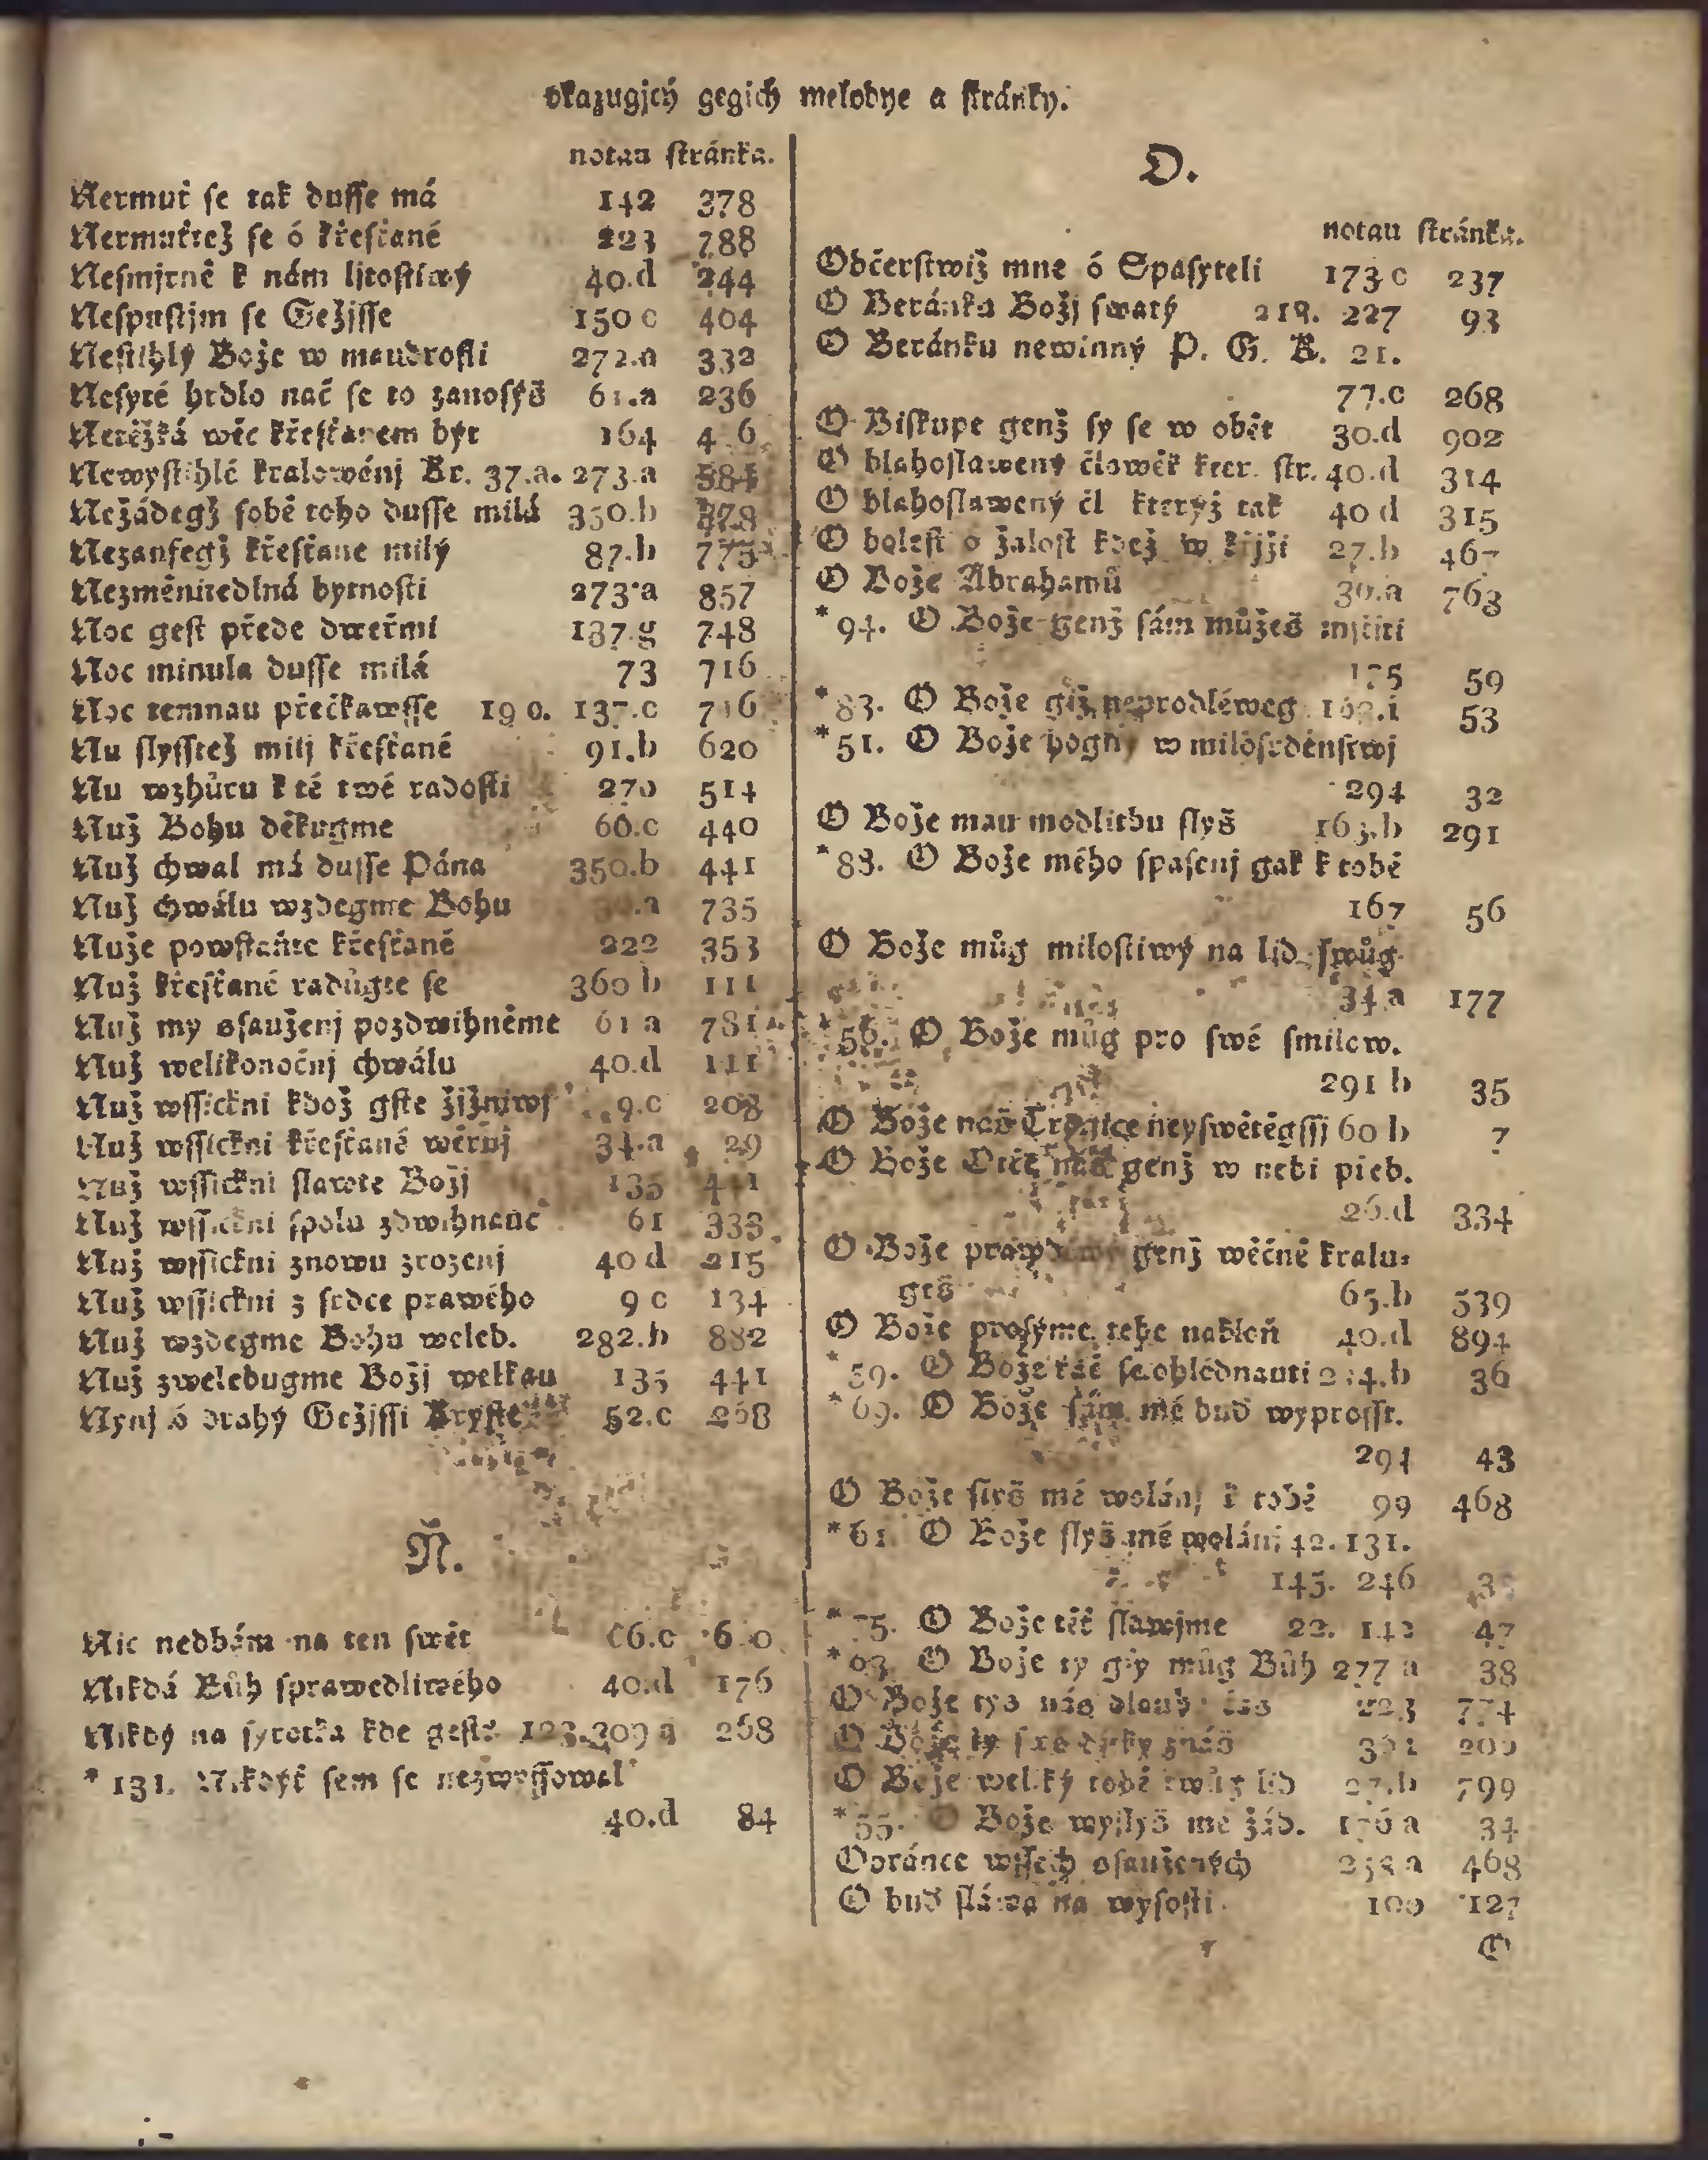 okazugjcý gegich melodye a stránky.
notau stránka.
Nermuť se tak dusse má 142 378
Nermuťtež se ó křesťané 223 788
Nesmjrně k nám ljtostiwý 40.d 244
Nespustjm se Gežjsse 150 c 404
Nestihlý Bože w maudrosti 272.a 332
Nesyté hrdlo nač se to zanosýš 61.a 236
Netěžká wěc křesťanem být 164
Newystihlé kralowánj Kr. 37.a. 273.a
Nežádegž sobě toho dusse milá 350.b
Nezaufegž křesťane milý 87.b 775
Nezměnitedlná bytnosti 273.a 857
Noc gest přede dweřmi 137.g 748
Noc minula dusse milá 73 716
Noc temnau přečkawsse 190. 137.c 716
Nu slysstež milj křesťané 91.b 620
Nu wzhůru k té twé radosti 270 514
Nuž Bohu děkugme 60.c 440
Nuž chwal má dusse Pána 350.b 441
Nuž chwálu wzdegme Bohu 735
Nuže powstaňte křesťané 222 353
Nuž křesťané radůgte se 360 b 111
Nuž my osauženj pozdwihněme 61 a 781
Nuž welikonočnj chwálu 40.d 111
Nuž wssickni kdož gste žjžniwj 9.c 208
Nuž wssickni křesťané wěrnj 34.a 29
Nuž wssickni slawte Božj 135
Nuž wssickni spolu zdwihněnť 61 333
Nuž wssickni znowu zrozenj 40 d 215
Nuž wssickni z srdce prawého 9 c 134
Nuž wzdegme Bohu weleb. 282.b 882
Nuž zwelebugme Božj welkau 135 441
Nynj ó drahý Gežjssi Kryste 52.c 268
Ň.
Nic nedbám na ten swět 66.c
Nikdá Bůh sprawedliwého 40.d 176
Nikdý na syrotka kde gest 123.209 a 268
* 131. Nikdýť sem se nezwyssowal
40.d 84
O.
notau stránka.
Občerstwiž mne ó Spasyteli 173 c 237
O Beránku Božj swatý 218. 227 93
O Beránku newinný P. G. K. 21.
77.c 268
O Biskupe genž sy se w obět 30.d 902
O blahoslawený člowěk kter. str. 40.d 314
O blahoslawený čl kterýž tak 40 d 315
O bolest o žalost když w křjži 27.b 467
O Bože Abrahamů 30.a 763
* 94. O Bože genž sám můžeš mstiti
175 59
* 83. O Bože giž neprodléweg 169.i 53
* 51. O Bože pogdy w milosrdenstwj
294 32
O Bože mau modlitbu slyš 163.b 291
* 88. O Bože mého spasenj gak k tobě
167 56
O Bože můg milostiwý na lid swůg
34.a 177
* 56. O Bože můg pro swé smilow.
291 b 35
O Bože náš Trogice neyswětěgssj 60 b 7
O Bože Otče náš genž w nebi pieb.
26.d 334
O Bože prawdiwý genž wěčně kralu-
geš 65.b 539
O Bože prosýme tebe nakloň 40.d 894
* 59. O Bože rač se ohlédnauti 36
* 69. O Bože sám mé buď wyprosst.
294 43
O Bože slyš mé wolánj k tobě 99 468
* 61 O Bože slyš mé wolánj 42. 131.
145. 246
* 75. O Bože tě slawjme 22. 142 47
* 63. O Bože ty gsy můg Bůh 277 a 38
O Bože tys nás dlauhý čas 223 774
O Bože ty srdečky znáš
O Bože weliký tobě twůg lid 27.b 799
* 55. O Bože wyslyš me žád. 176 a 34
Obránce wssech osaužených 468
O buď sláwa na wysosti 100 127
O